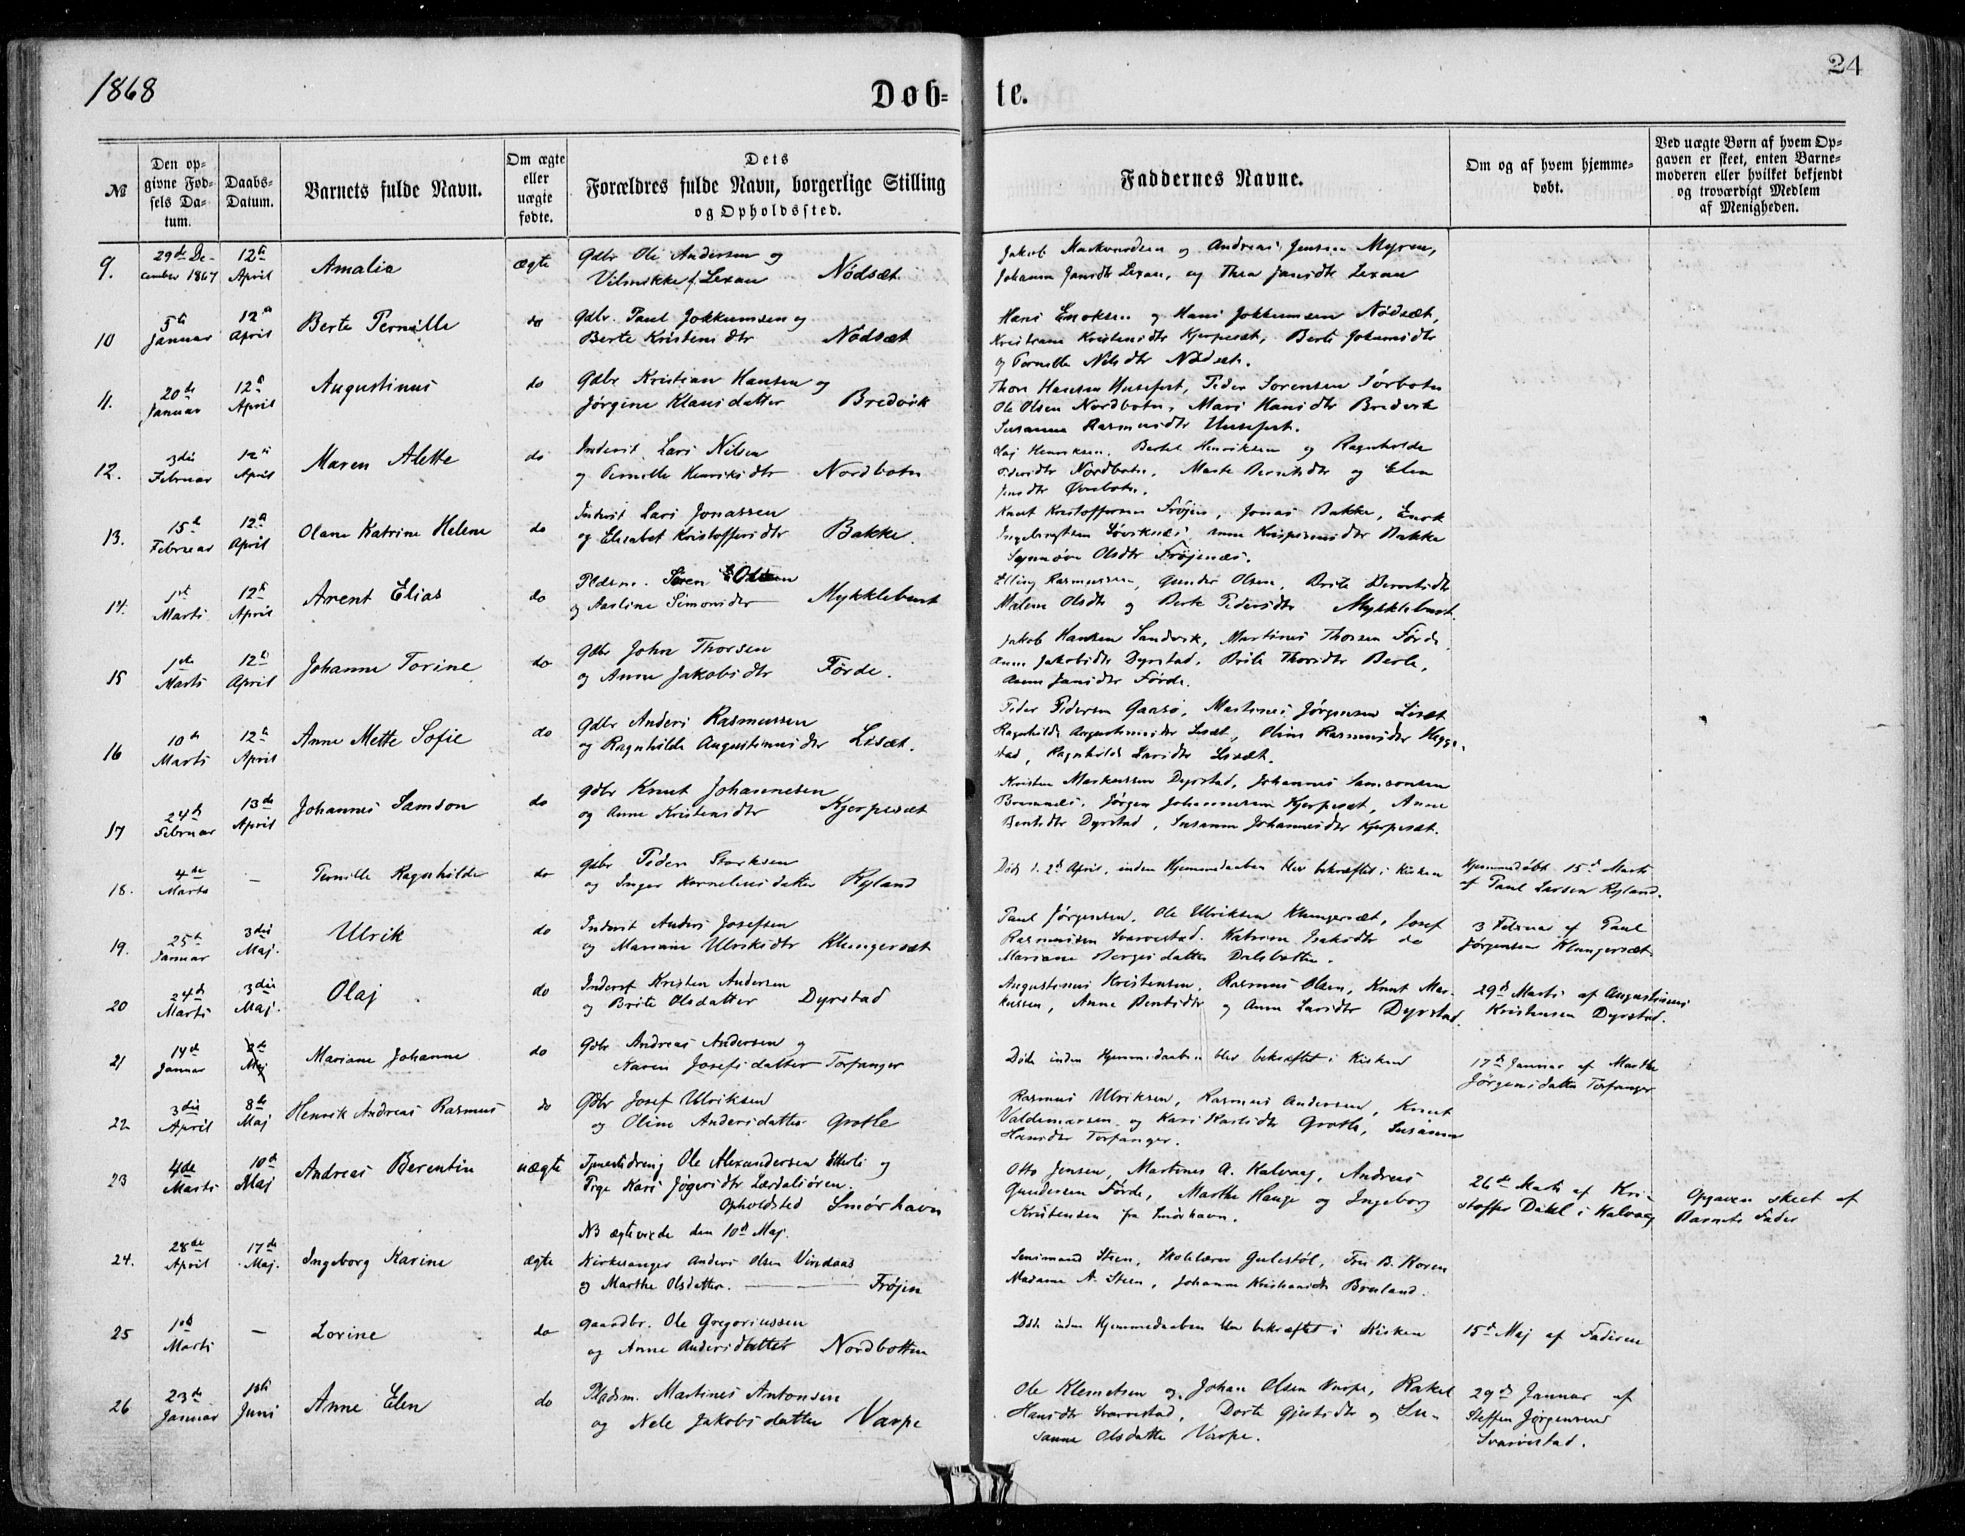 1868
24
Døb-te.
№
Den op-
givne Fød-
sels Da-
tum.
Daabs-
Datum.
Barnets fulde Navn.
Om ægte
eller
uægte
fødte.
Dets
Forældres fulde Navn, borgerlige Stilling
og Opholdssted.
Faddernes Navne.
Om og af hvem hjemme-
døbt.
Ved uægte Børn af hvem Op-
gaven er skeet, enten Barne-
moderen eller hvilket bekjendt
og troværdigt Medlem
af Menigheden.
9.
29de De-
cember 1867
12te
April
Amalia
ægte
Gdbr Ole Andersen og
Vilmikke f. Lexau Nødsæt
Jakob Markvardsen og Andreas Jensen Myren,
Johanna Jansdtr Lexau, og Thea Jansdtr Lexau
10
5te
Januar
12te
April
Berte Pernille
do
Gdbr. Paul Jokkumsen og
Berte Kristensdtr Nødsæt
Hans Enoksen og Hans Jokkumsen Nødsæt,
Kristiane Kristensdtr Kjerpesæt, Berte Johansdtr
og Pernille Nilsdtr Nødsæt.
11.
20de
Januar
12te
April
Augustinus
do
Gdbr Kristian Hansen og
Jørgine Klausdatter Bredvik
Thore Hansen Husefest, Peder Sørensen Sørbotn
Ole Olsen Nordbotn, Mari Hansdtr Bredvik
Susanne Rasmusdtr Husefest.
12.
3die
Februar
12te
April
Maren Alette
do
Inderst. Lars Nilsen
og Pernille Henriksdtr Nordbotn
Olaj Henriksen, Bertel Henriksen og Ragnhilde
Pedersdtr Nordbotn, Marte Berntsdtr og Elen
Jensdtr Øvrebotn.
13.
15de
Februar
12te
April
Olane Katrine Helene
do
Inderst Lars Jonassen
og Elisabet Kristoffersdtr Bakke.
Knut Kristoffersen Frøjen, Jonas Bakke, Enok
Ingebrigtsen Løviknæs, Anne Krispinusdtr Bakke
Synnøve Olsdtr Frøjenæs.
14.
1ste
Marts
12te
April
Arent Elias
do
Pladsm. Søren Olsen
og Aasline Simonsdtr Myklebust
Elling Rasmussen, Gunder Olsen, Brite Berntsdtr
Malene Olsdtr og Berte Pedersdtr Myklebust
15
1ste
Marts
12te
April
Johanne Torine
do
Gdbr John Thorsen
og Anne Jakobsdtr Førde.
Jakob Hansen Sandvik, Martinus Thorsen Førde,
Anne Jakobsdtr Dyrstad, Brite Thorsdtr Berle,
Anne Jansdtr Førde.
16
10de
Marts
12te
April
Anne Mette Sofie
do
Gdbr Anders Rasmussen
og Ragnhilde Augustinusdtr Lisæt.
Peder Pedersen Gaasø, Martines Jørgensen Lisæt
Ragnhilde Augustinusdtr Lisæt, Oline Rasmusdtr Hegge-
stad, Ragnhilde Larsdtr Lisæt.
17
24de
Februar
13de
April
Johannes Samson
do
Gdbr Knut Johannesen
og Anne Kristensdtr Kjerpesæt
Kristen Markussen Dyrstad, Johannes Samsonsen
Bremnæs, Jørgen Johannessen Kjerpesæt, Anne
Bentsdtr Dyrstad, Susanne Johannesdtr Kjerpesæt.
18.
4de
Marts
—
Pernille Ragnhilde
do
Gdbr Peder Starksen
og Inger Korneliusdatter Ryland
Døde d. 2de April, inden Hjemmedaaben blev bekræftet i Kirken
Hjemmedøbt 15de Marts
af Paul Larsen Ryland.
19.
25de
Januar
3die
Maj.
Ulrik
do
Inderst Anders Josefsen
og Mariane Ulriksdtr Klungersæt
Paul Jørgensen, Ole Ulriksen Klungersæt, Josef
Rasmussen Svarvestad. Katrine Isaksdtr do
Mariane Børgesdatter Dalsbotten.
3 Februar af Paul
Jørgensen Klungersæt
20
24de
Marts
3die
Maj.
Olaj
do
Inderst Kristen Andersen
og Brite Olsdatter Dyrstad
Augustinus Kristensen, Rasmus Olsen, Knut Mar-
kussen, Anne Bentsdtr og Anne Larsdtr Dyrstad.
29de Marts af Augustinus
Kristensen Dyrstad.
21
14de
Januar
Maj
Mariane Johanne
do
Gdbr Andreas Andersen og
Karen Josefsdatter Torfanger
Døde inden Hjemmedaaben blev bekræftet i Kirken
17de Januar af Marthe
Jørgensdatter Torfanger
22
3die
April
8de
Maj
Henrik Andreas Rasmus
do
Gdbr Josef Ulriksen
og Oline Andersdatter Grotle
Rasmus Ulriksen, Rasmus Andersen, Knut
Valdemarsen og Kari Karlsdtr Grotle, Susanne
Hansdtr Torfanger.
23
4de
Marts
10de
Maj
Andreas Berentin
uægte
Tjenestedreng Ole Alexandersen Etterli og
Pige Kari Jøgersdtr Lærdalsøren.
Opholdsted Smørhavn
NB ægteviede den 10de Maj.
Otto Jensen, Martines A. Kalvaag, Andreas
Gundersen Førde, Marthe Hauge og Ingeborg
Kristensen fra Smørhavn.
26de Marts af Kri-
stoffer Dahl i Kalvaag
Opgaven skeet af
Barnets Fader
24.
28de
April
17de
Maj.
Ingeborg Karine
ægte
Kirkesanger Anders Olsen Vindaas
og Marthe Olsdatter. Frøjen
Lensmand Steen, Skolelærer Gulestøl, Fru B. Koren
Madame A. Steen, Johanne Kristiansdtr Breland.
25
1ste
Marts
—
Lorine
do
Gaardbr. Ole Gregoriussen
og Anne Andersdatter Nordbotten
Døde inden Hjemmedaaben blev bekræftet i Kirken
15de Maj af Faderen
26
23de
Januar
1ste
Juni
Anne Elen
do
Pladsm. Martines Antonsen
og Nele Jakobsdatter Varpe
Ole Klemetsen og Johan Olsen Varpe, Rakel
Hansdtr Svarvestad, Dorte Gjertsdtr og Su-
sanne Olsdatter Varpe.
29de Januar af
Steffen Jørgensen
Svarvestad.